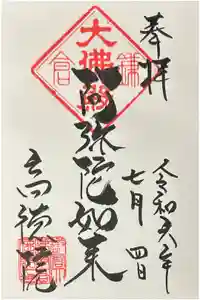 奉拝
令和六年
七月四日
鎌倉
大佛殿
阿弥陀如来
高徳院